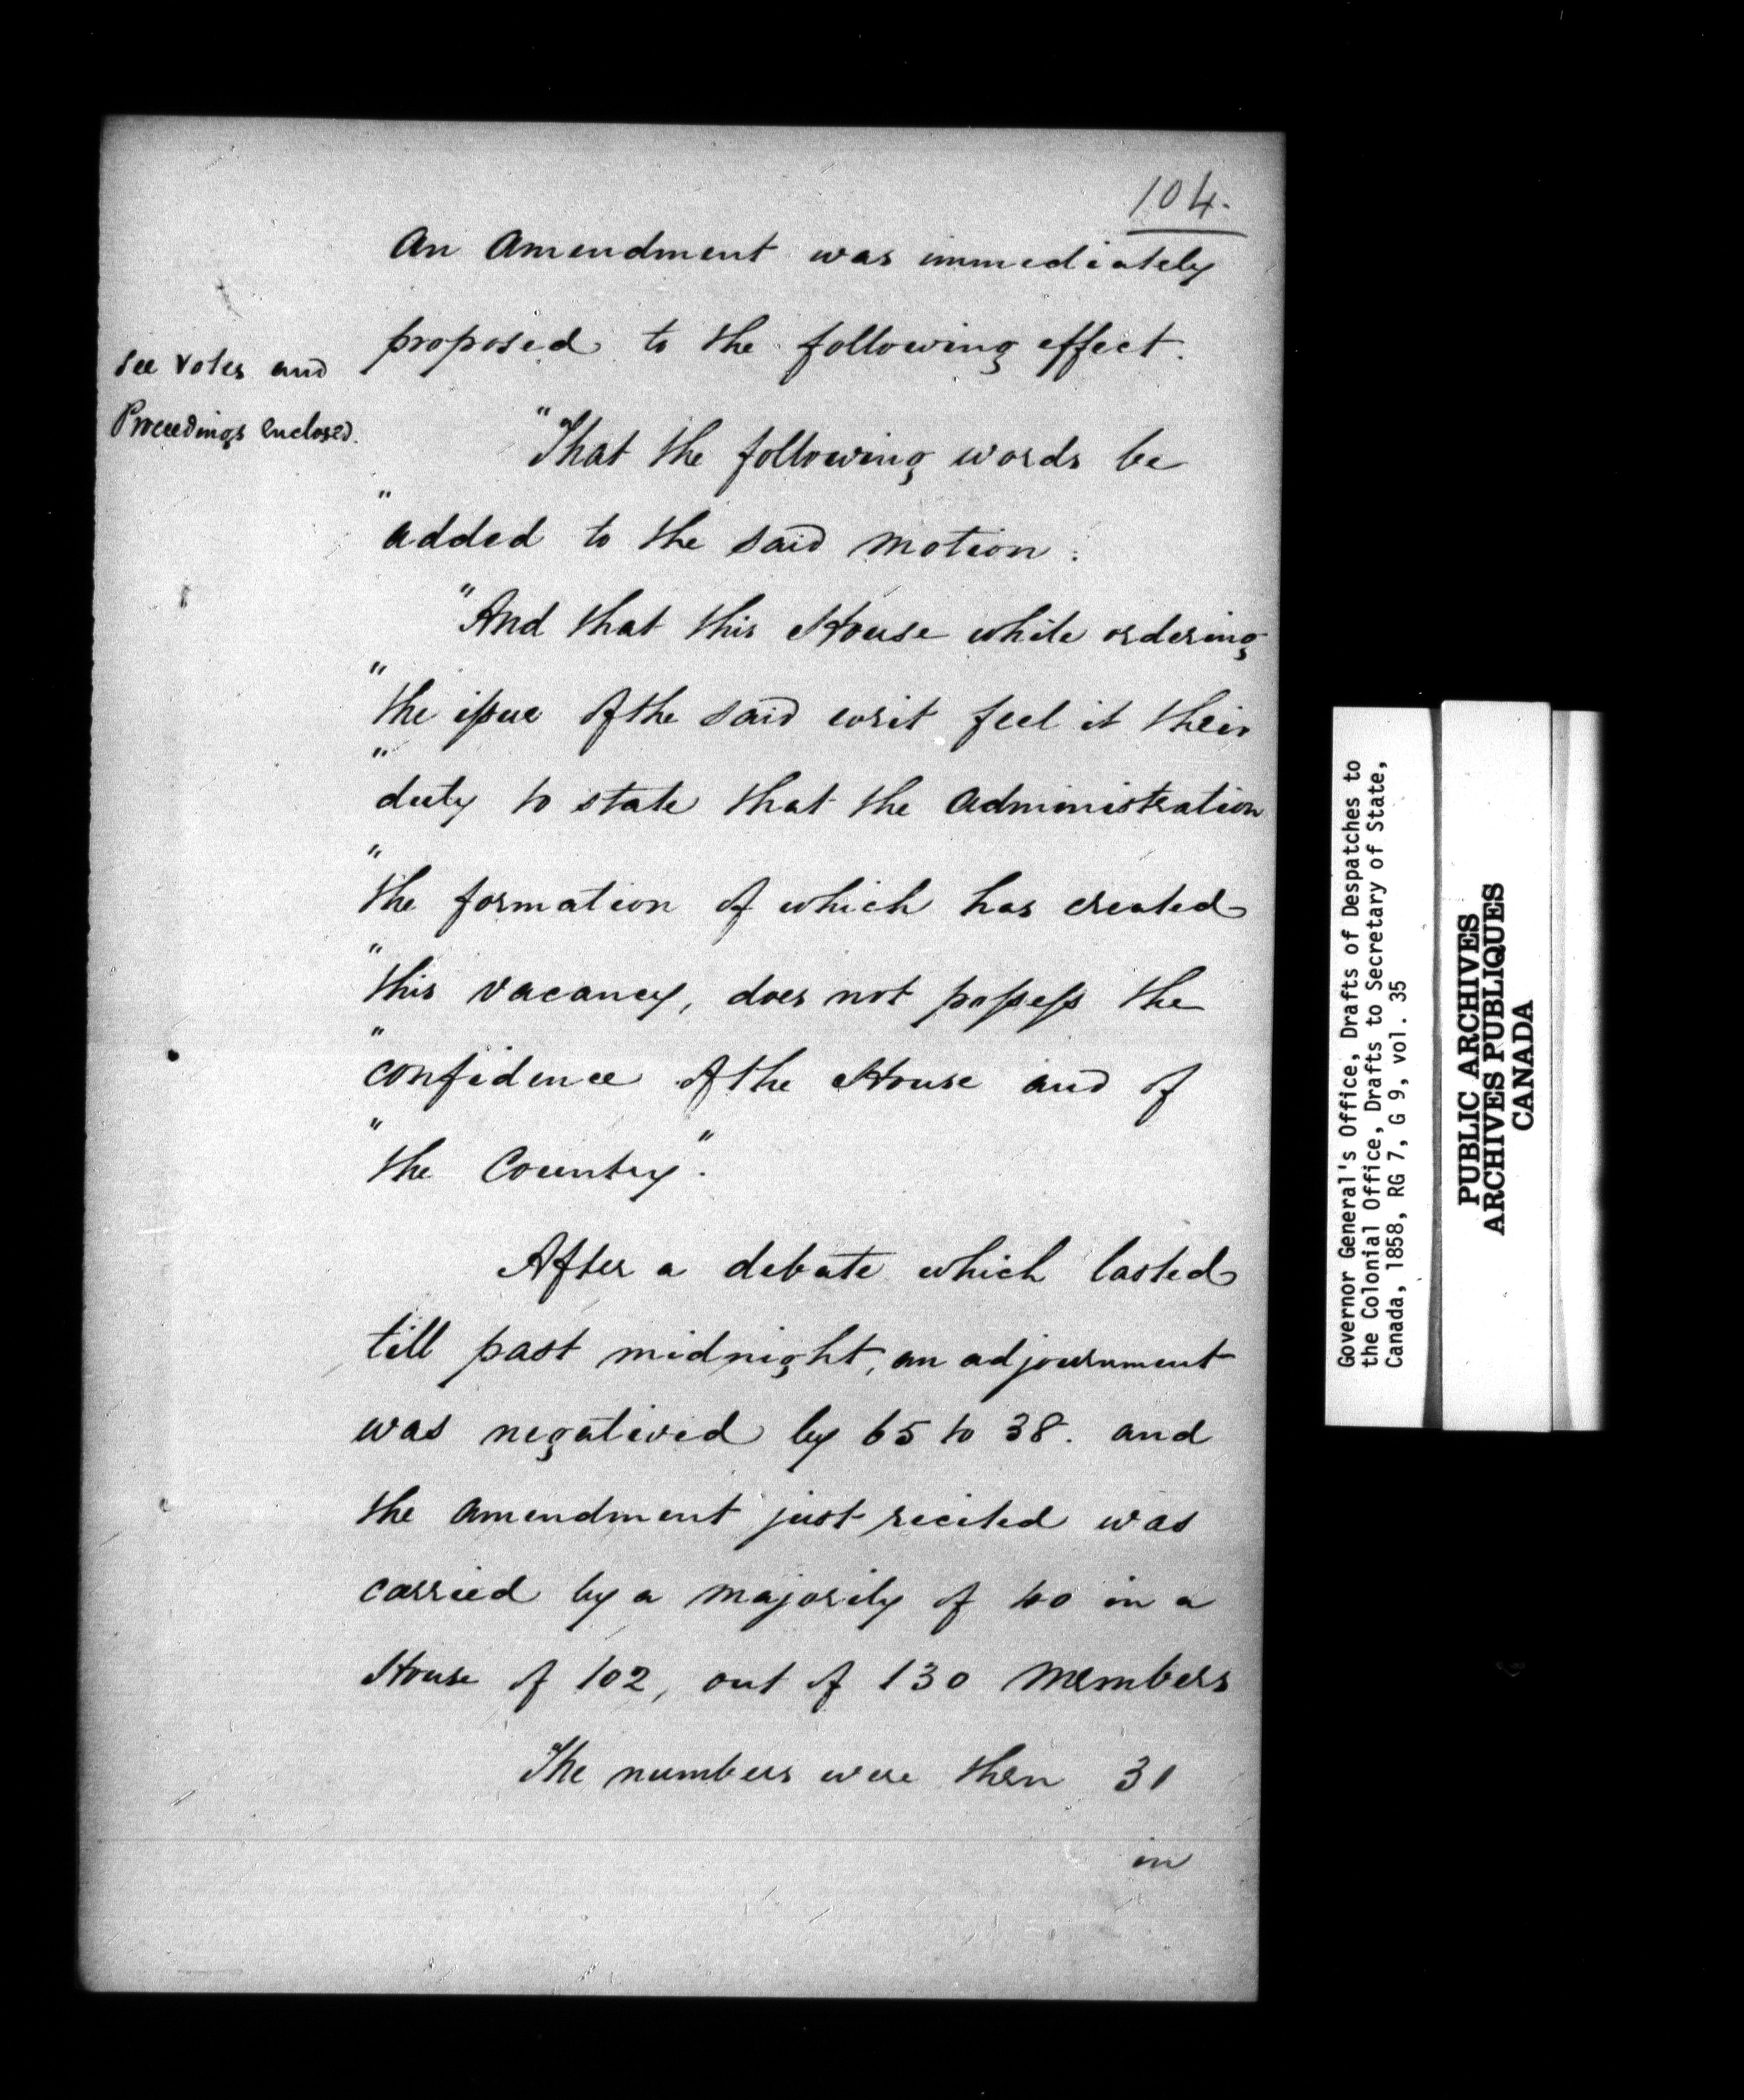 104.
An Amendment was immediately
proposed to the following effect.
See Votes and
Proceedings enclosed.
"That the following words be
"added to the said motion:
"And that this House while ordering
"the issue of the said writ feel it their
"duty to state that the Administration
"the formation of which has created
"this vacancy, does not possess the
"confidence of the House and of
"the Country".
After a debate which lasted
till past midnight, an adjournment
was negatived by 65 to 38. and
the amendment just recited was
carried by a majority of 40 in a
House of 102, out of 130 Members
The numbers were then 31
in
Governor General's Office, Drafts of Despatches to
the Colonial Office, Drafts to Secretary of State,
Canada, 1858, RG 7, G 9, vol. 35
PUBLIC ARCHIVES
ARCHIVES PUBLIQUES
CANADA